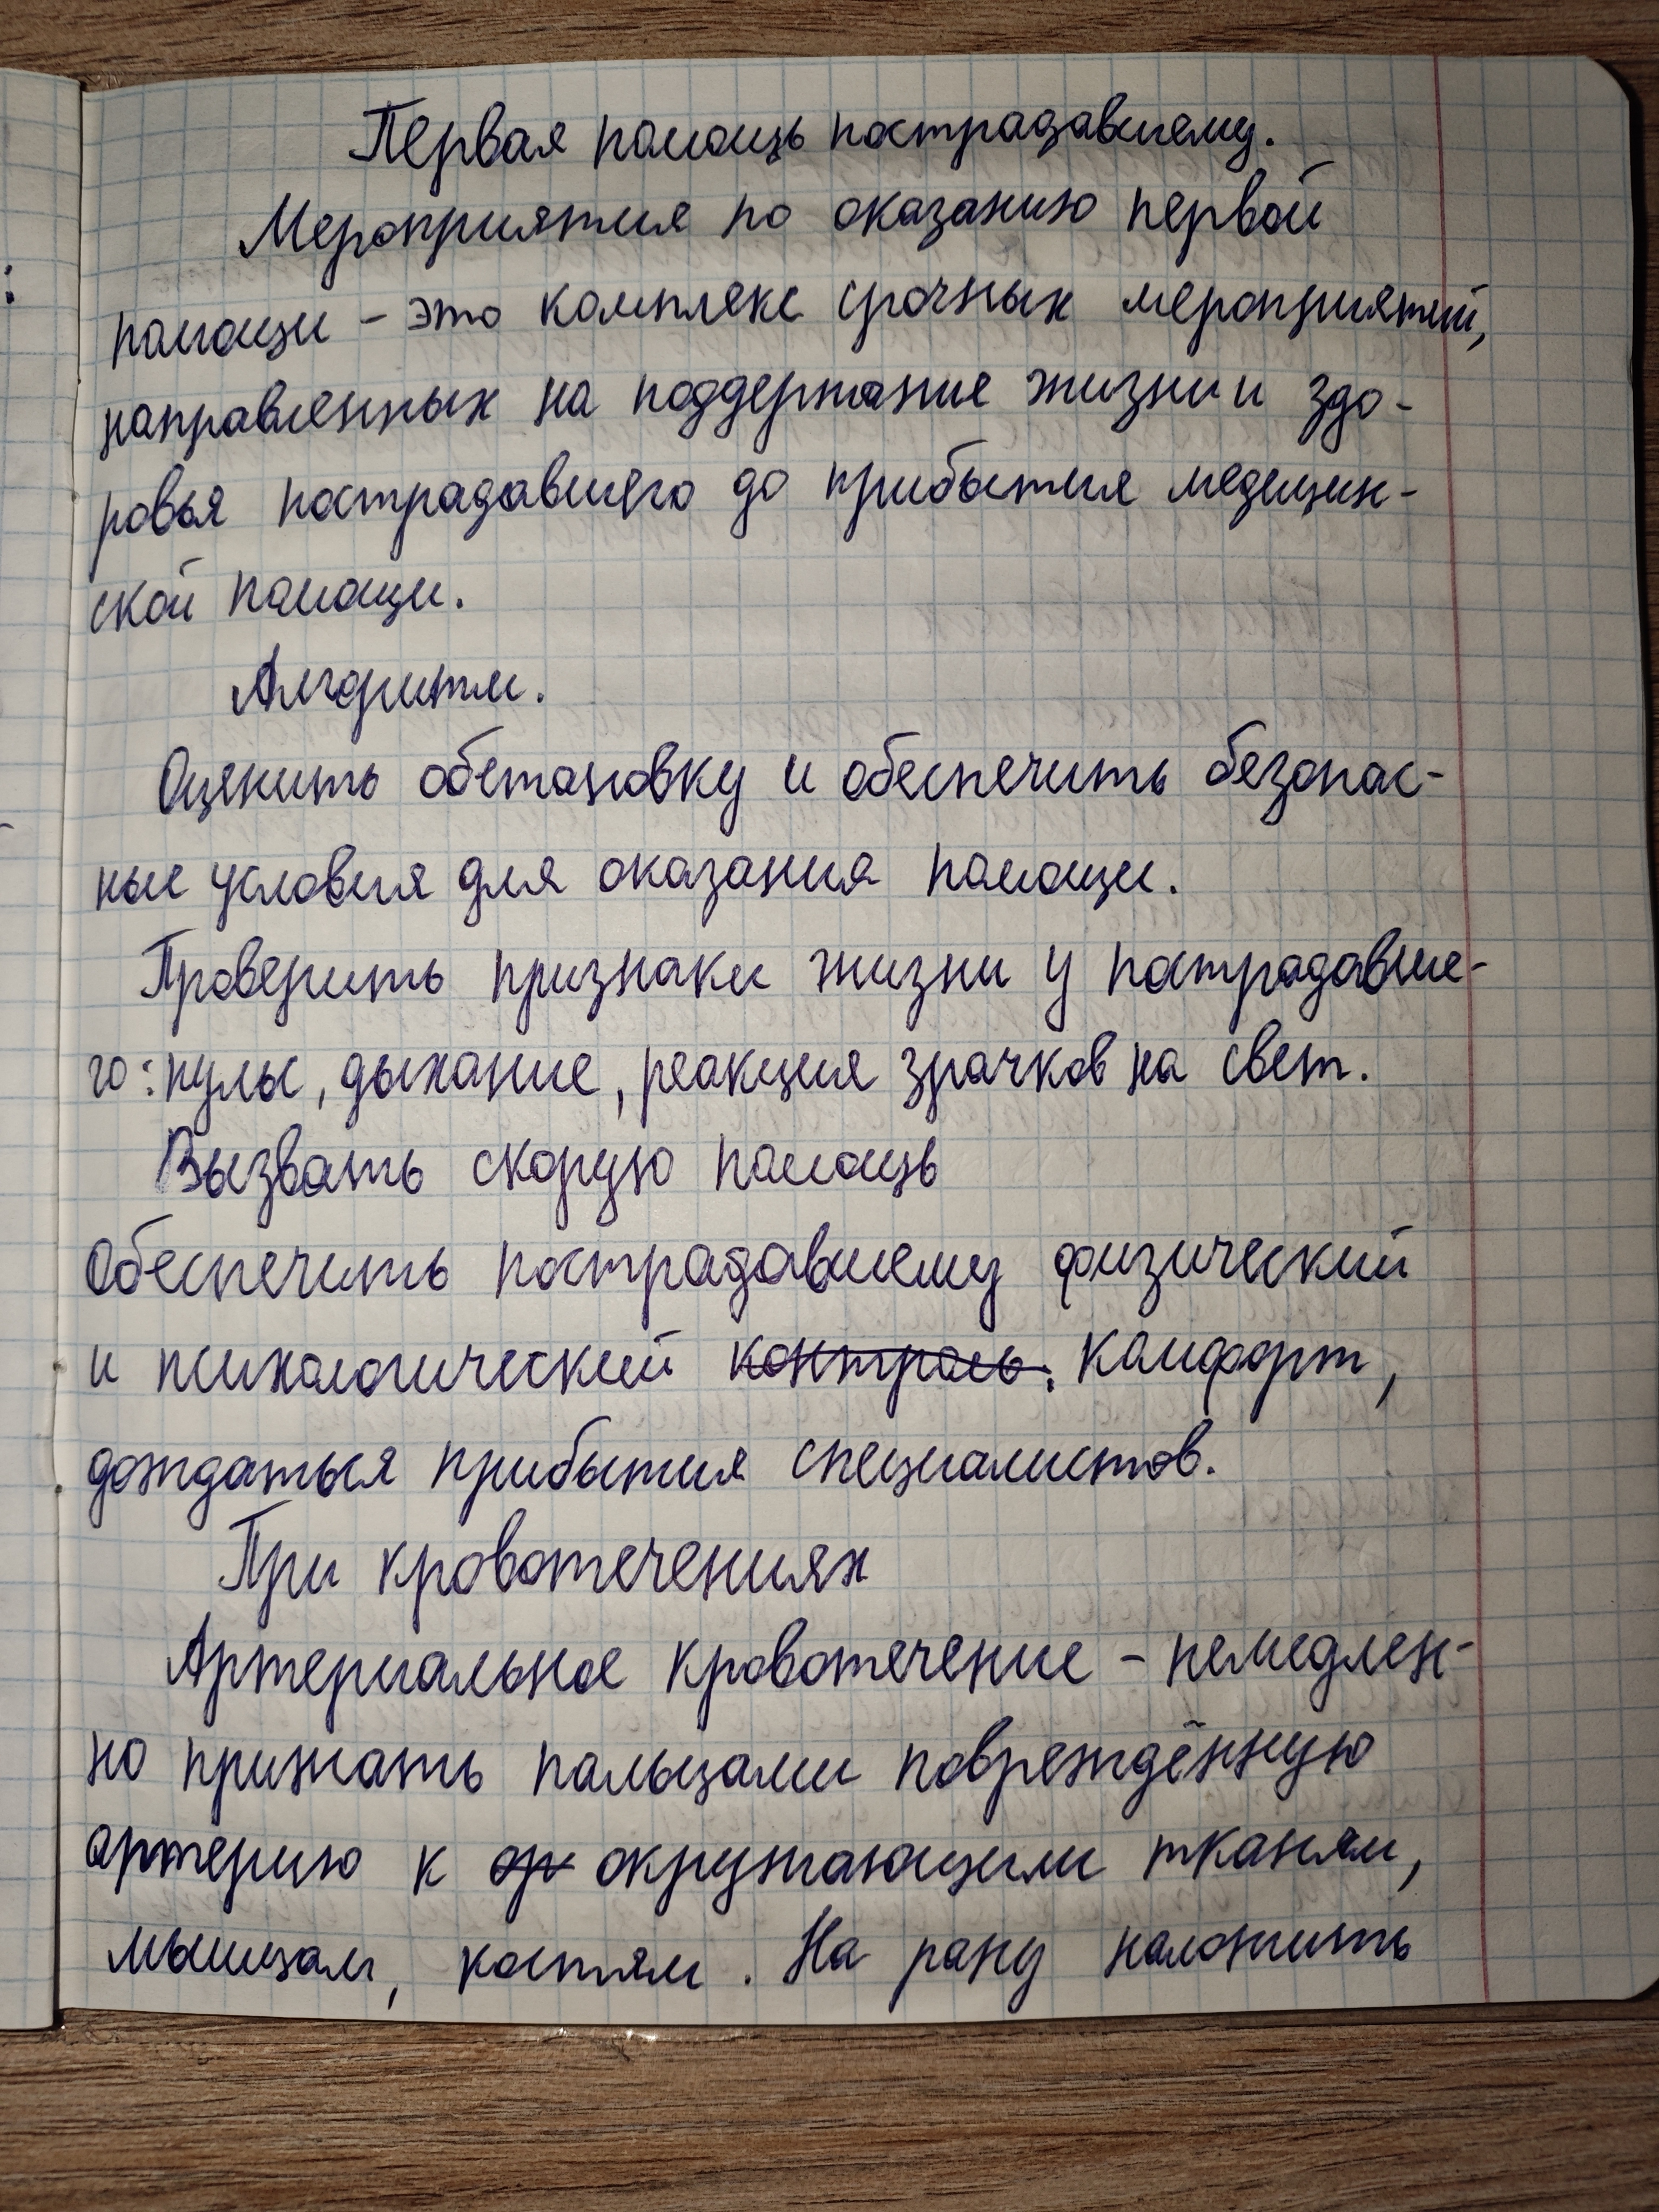 Первая помощь пострадавшему.
Мероприятия по оказанию первой
помощи – это комплекс срочных мероприятий,
направленных на поддержание жизни и здо-
ровья пострадавшего до прибытия медицин-
ской помощи.
Алгоритм.
Оценить обстановку и обеспечить безопас-
ные условия для оказания помощи.
Проверить признаки жизни у пострадавше-
го: пульс, дыхание, реакция зрачков на свет.
Вызвать скорую помощь
Обеспечить пострадавшему физический
и психологический контроль. комфорт,
дождаться прибытия специалистов.
При кровотечениях
Артериальное кровотечение – немедлен-
но прижать пальцами повреждённую
артерию к окружающим тканям,
мышцам, костям. На рану наложить